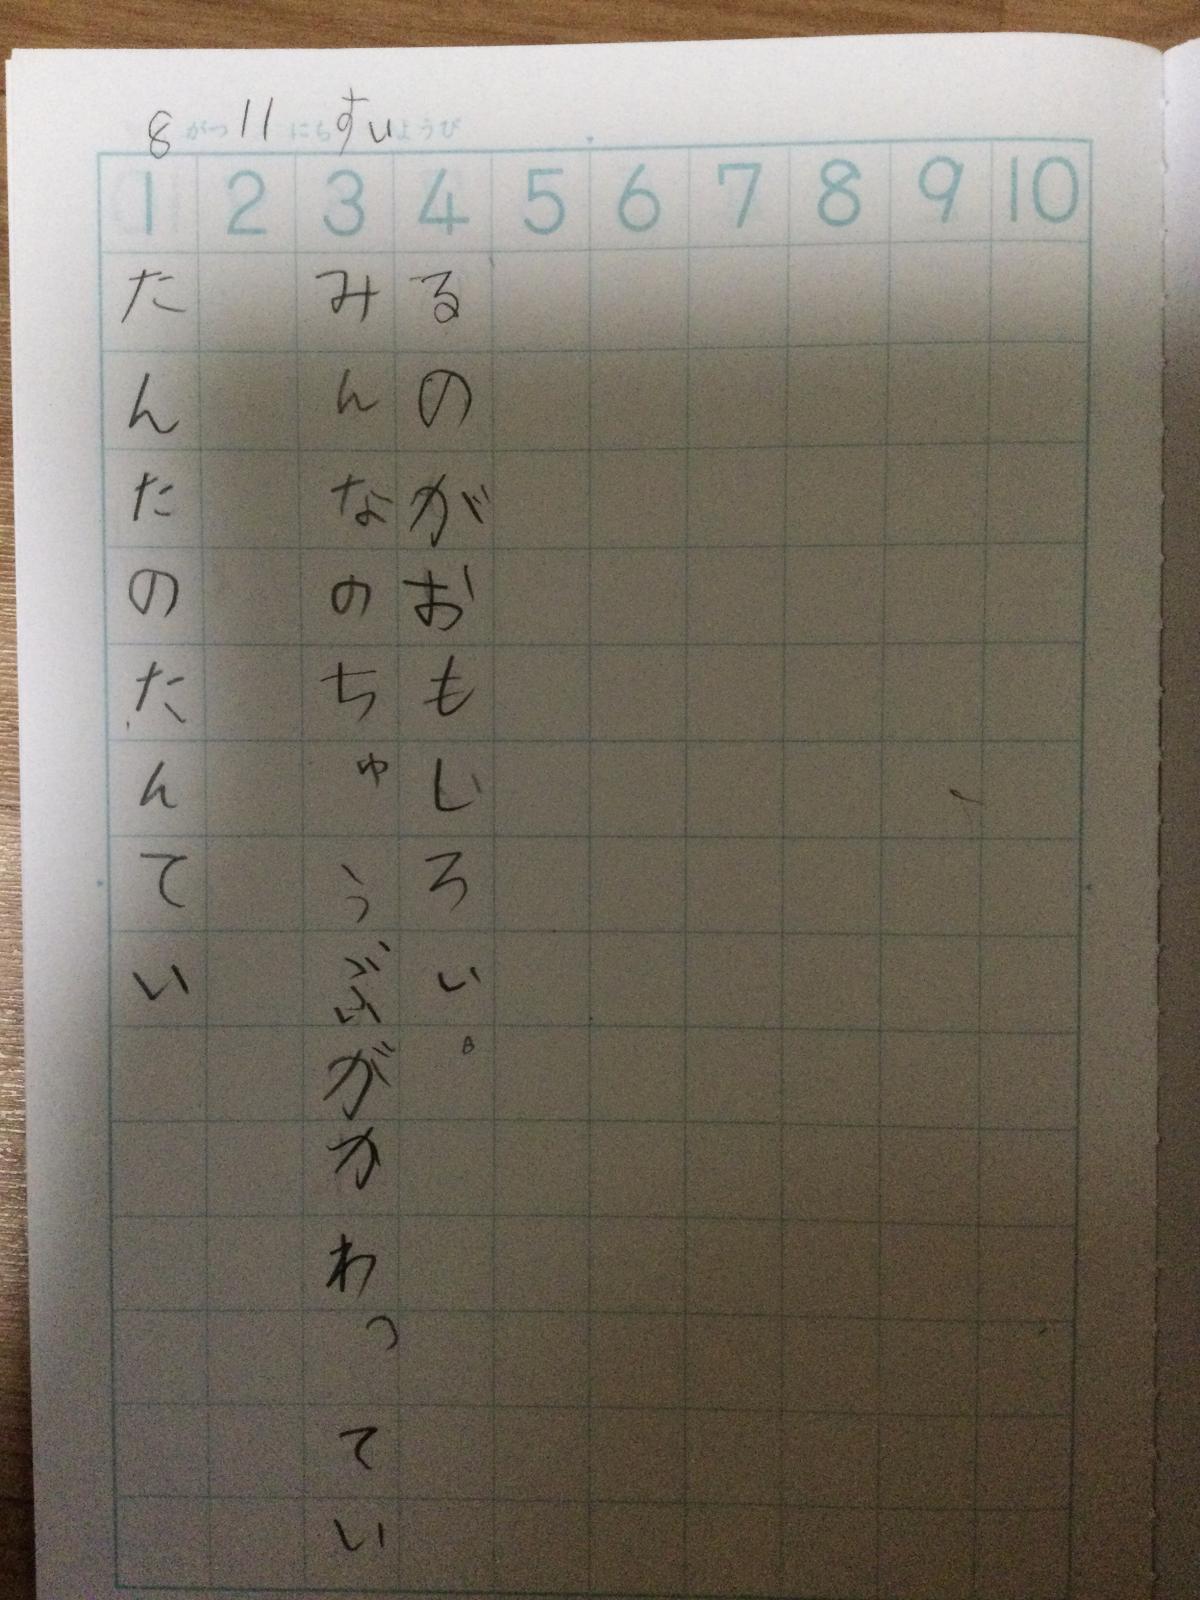 8がつ11にちすいようび
1 2 3 4 5 6 7 8 9 10
たんたのたんてい
みんなのちゅうぶがかわってい
るのがおもしろい。